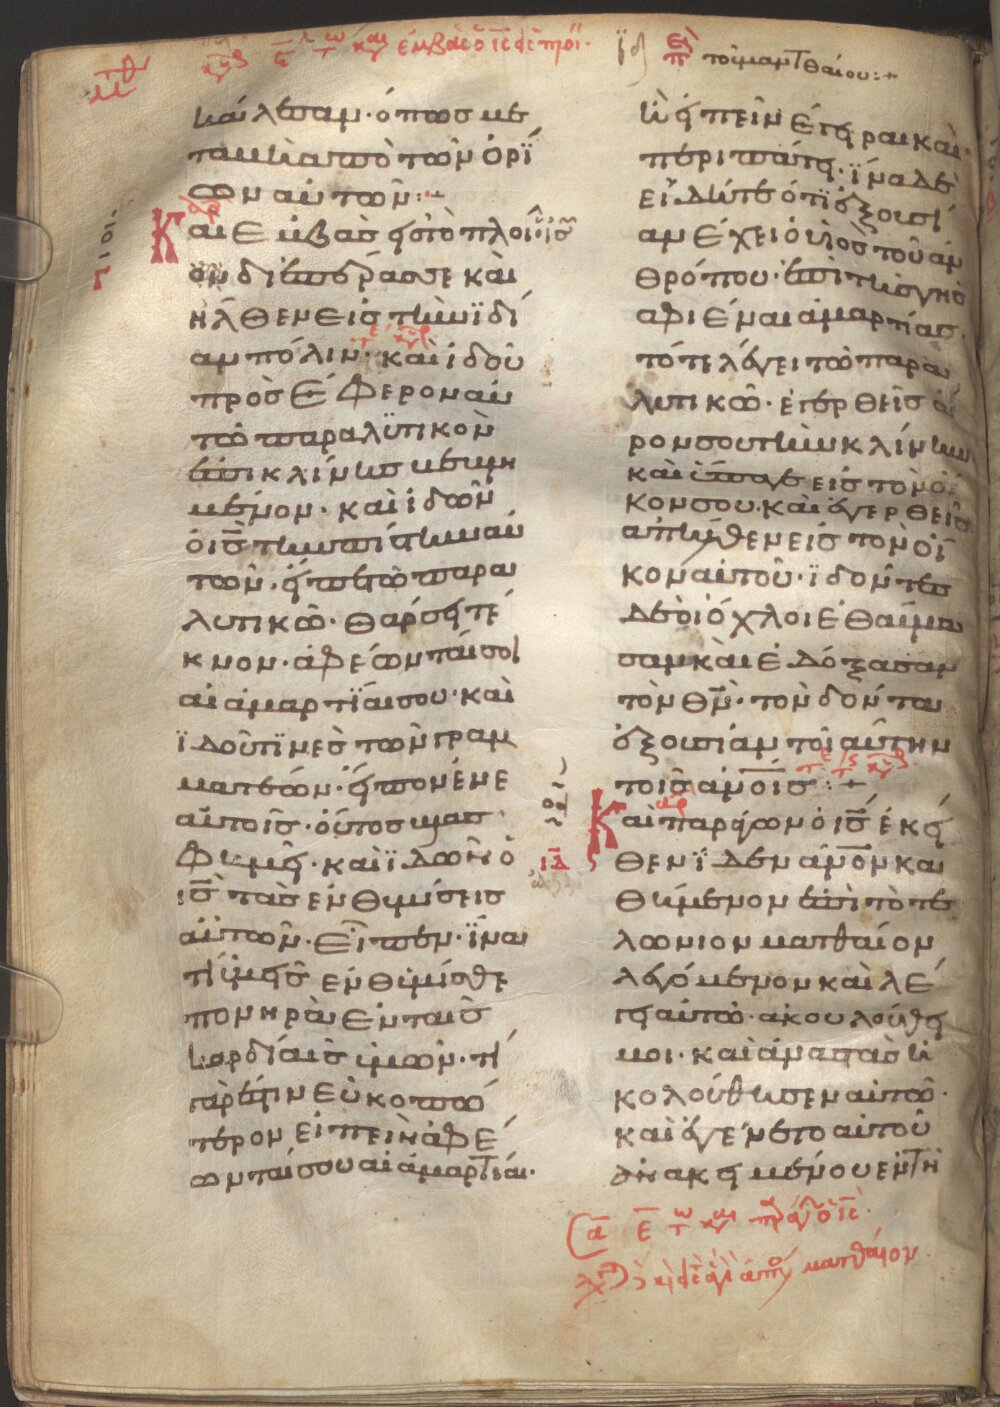 ἐμβὰς ὁ ις εἰς τὸ πλοῖ
ιδ περὶ τοῦ ματθαίου :+
κάλεσαν · ὅπως με
ταβῆ ἀπὸ τῶν ὁρΐ
ων αὐτῶν :+
Καὶ ἐμβὰς ὁ ις εἰς τὸ πλοῖ
ον διεπέρασε καὶ
ἦλθεν εἰς τὴν ϊδί
αν πόλιν · καὶ ἰδοῦ
προσέφερον αὐ
τῶ παραλϋτικὸν
ἐπι κλίνης μεμβλη
μένον · καὶ ἰδὼν
ὁ ις τὴν πίστιν αὐ
τῶν · εἶπε τῶ παρα
λυτικῶ · θάρσει τέ
κνον · ἀφέωνταί σοι
αἱ ἁμαρτϊαι σου · καὶ
ϊδοῦ τϊνὲς τῶν γραμ
ματέων · εἶπον ἐν ἑ
αυτοῖς · οὗτος βλασ
φημεῖ · καὶ ϊδὼν ὁ
ις τὰς ἐνθυμίσεις
αὐτῶν · εἶπεν · ϊνα
τί ὑμεῖς ἐνθυμίσθε
πονηρὰ ἐν ταῖς
καρδίαις ὑμῶν · τί
γάρ ἐστιν εὐκοπώ
τερον εἰπεῖν ἀφέ
ωνταί σου αἱ ἁμαρτίαι ·
ἢ εἰπεῖν ἔγειραι καὶ
περιπάτει · ϊνα δὲ
εἰδῆτε ὅτι ἐξουσί
αν ἔχει ὁ υἱὸς τοῦ ἀν
θρόπου · ἐπὶ τῆς γῆς
ἀφιέναι ἁμαρτίας ·
τότε λέγει τῶ παρα
λυτικῶ · ἐγερθεὶς ἆ
ρον σου τὴν κλίνην
καὶ ὕπαγε εἰς τὸν οἶ
κον σου · καὶ ἐγερθεὶς
ἀπῆλθεν εἰς τὸν οἶ
κον αὐτοῦ · ϊδόντες
δὲ οἱ ὄχλοι ἐθαύμα
σαν καὶ ἐδόξασαν
τὸν θν · τὸν δόντα
ἐξουσίαν τοιαύτην
τοῖς ανοις :+
Καὶ παράγων ὁ ις ἐκεῖ
θεν ϊδεν ανον κα
θήμενον ἐπὶ τὸ τε
λώνιον ματθαίον
λεγόμενον καὶ λέ
γει αὐτῶ · ἀκουλούθει
μοι · καὶ ἀναστὰς ἠ
κολούθησεν αὐτῶ ·
καὶ ἐγένετο αὐτοῦ
ἀνακειμένου ἐν τῆ